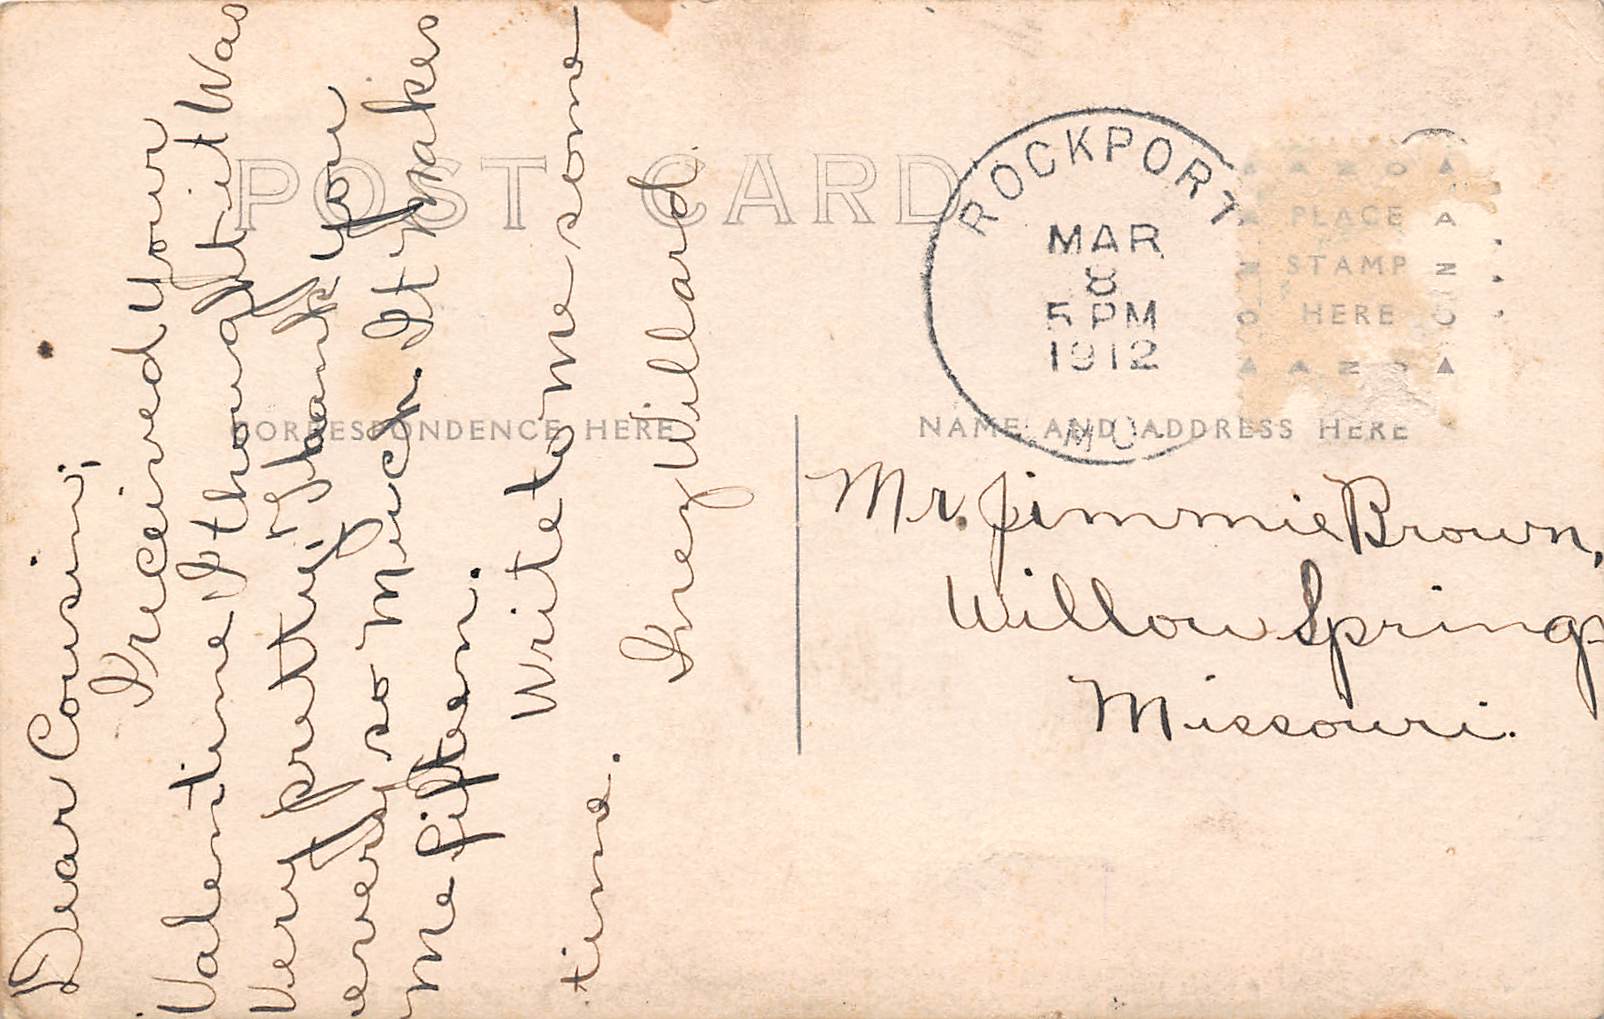 POST CARD
CORRESPONDENCE HERE
NAME AND ADDRESS HERE
ROCKPORT
MAR
8
5 PM
1912
MO.
PLACE
STAMP
HERE
AZO
AZO
AZO
AZO
Dear Cousin;
I received your
Valentine I thought it was
very pretty. Thank you
ever so much. It makes
me fifteen.
Write to me some
time.
Inez Willard.
Mr. Jimmie Brown,
Willow Springs
Missouri.